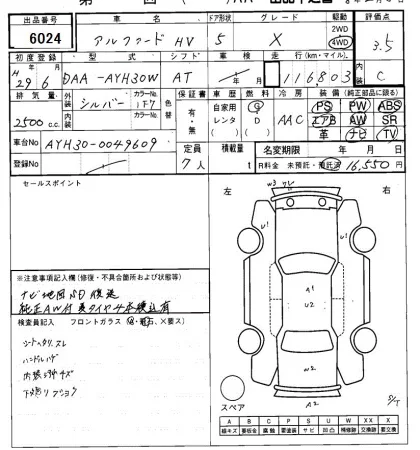 出品番号 車名 ドア形状 グレード 駆動 評価点
6024 アルファード HV 5 X 2WD 4WD 3.5
初度登録 型式 シフト 車検 走行(km・マイル) 内装
H29 6 DAA-AYH30W AT 年 月 116803 C
排気量 外装 カラーNo. 色替 保証書 車歴 燃料 冷房 装備(純正部品に限る)
2500 c.c. シルバー 1F7 有・無 自家用 レンタ ( ) G D ( ) AAC PS PW ABS
エアB AW SR
内装 カラーNo. 革 ナビ TV
車台No AYH30-0049609 定員 積載量 名変期限 年 月 日
登録No 7人 t R料金 未預託・預託済 16,550円
セールスポイント
左 右
w3
U1
U1
A1
U2
W2
A2
スペア
※注意事項記入欄(修復・不具合箇所および状態等)
ナビ地図SD欠品
純正AW付夏タイヤ4本積込有
検査員記入 フロントガラス
シートヘタリ、スレ
ハンドルハゲ
内張うすキズ
下廻りフショク
A B C P S U W X XX X
線キズ 事板金 腐蝕 要塗装 サビ 凹凸 補修跡 交換跡 要交換